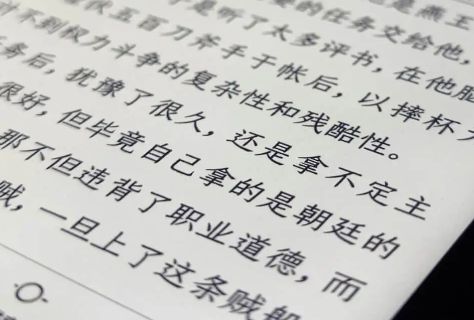 要的任务交给他，
子是听了太多评书，在他服
伏五百刀斧手于帐后，以摔杯
不到权力斗争的复杂性和残酷性。
务后，犹豫了很久，还是拿不定主
很好，但毕竟自己拿的是朝廷的
那不但违背了职业道德，而
贼，一旦上了这条贼船